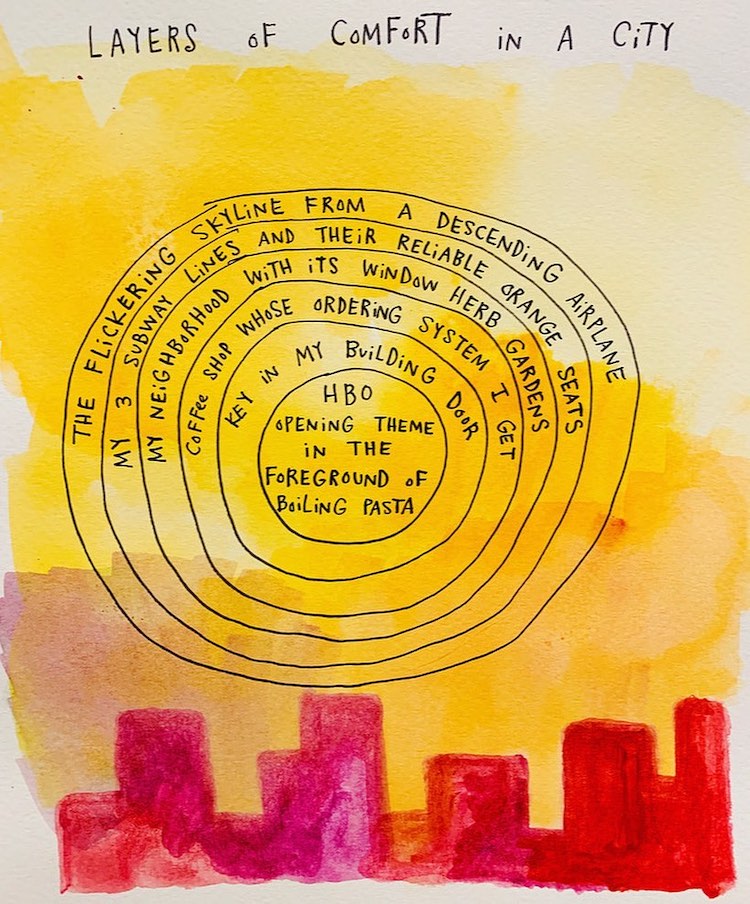 LAYERS OF COMFORT IN A CITY
THE FLICKERING SKYLINE FROM A DESCENDING AIRPLANE
MY 3 SUBWAY LINES AND THEIR RELIABLE ORANGE SEATS
MY NEIGHBORHOOD WITH ITS WINDOW HERB GARDENS
COFFEE SHOP WHOSE ORDERING SYSTEM I GET
KEY IN MY BUILDING DOOR
HBO
OPENING THEME
IN THE
FOREGROUND OF
BOILING PASTA